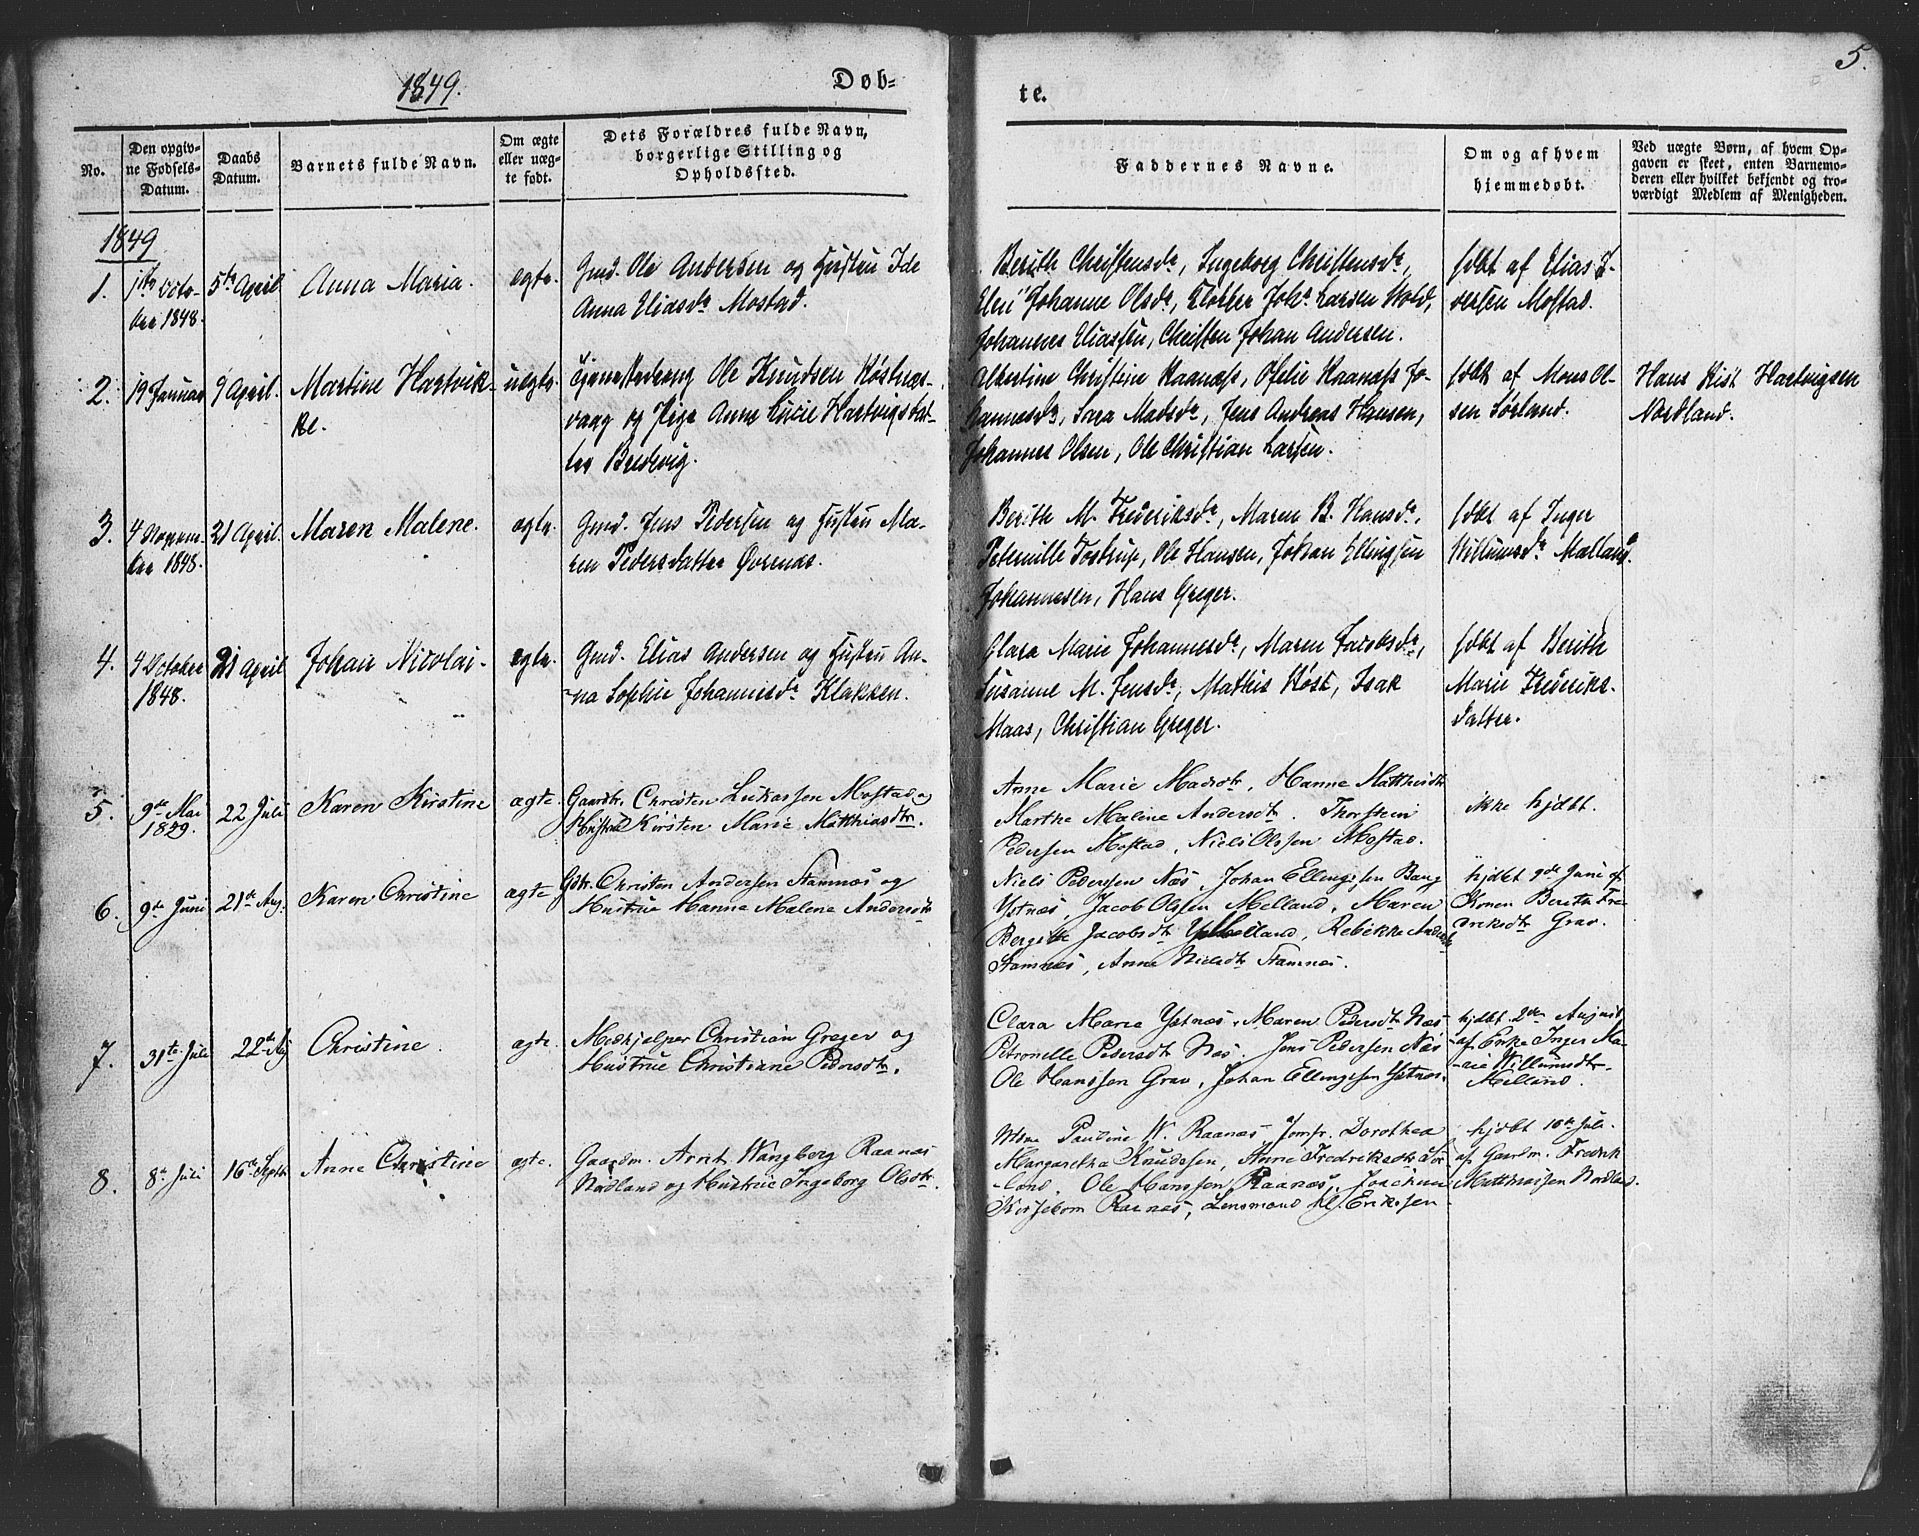 1849.
Døb-
te.
5.
No.
Den opgiv-
ne Fødsels-
Datum.
Daabs
Datum.
Barnets fulde Navn.
Om ægte
eller uæg-
te født.
Dets Forældres fulde Navn,
borgerlige Stilling og
Opholdssted.
Faddernes Navne.
Om og af hvem
hjemmedøbt.
Ved uægte Børn, af hvem Op-
gaven er skeet, enten Barnemo-
deren eller hvilket bekjendt og tro-
værdigt Medlem af Menigheden.
1849
1.
1ste Octo-
ber 1848.
5te April
Anna Maria.
ægte.
Gmd. Ole Andersen og Hustru Ide
Anna Eliasdr Mostad.
Berith Christensdr, Ingeborg Christensdr,
Johanne Olsdr, Klokker Johs Larsen Wold,
Johannes Eliassen, Christen Johan Andersen.
født af Elias I-
versen Mostad.
2.
19 Januar
9 April.
Martine Hartvik-
ke.
uægte.
Ole Knudsen Røstnæs-
vaag og Pige Anne Lucie Hartvigsdat-
ter Bredvig.
Albertine Christine Raanæss, Ofelie Raanæss Jo-
hannesdr, Sara Madsdr, Jens Andreas Hansen,
Johannes Olsen, Ole Christian Larsen.
født af Mons Ol-
sen Sørland.
Hans Kist Hartvigsen
Nordland.
3.
4 Novem-
ber 1848.
21 April.
Maren Malene.
ægte.
Gmd. Jens Pedersen og Hustru Ma-
ren Pedersdatter Øvrenæs.
Berith M. Frederiksdr, Maren B. Hansdr,
Peternille Tostrup, Ole Hansen, Johan Ellingsen
Johannesen, Hans Greger.
født af Inger
Willumsdr Mælland.
4.
4 October
1848.
21 April
Johan Nicolai.
ægte.
Gmd. Elias Andersen og Hustru An-
na Sophie Johannesdr Klakken.
Clara Marie Johannesdr, Maren Jacobsdr,
Susanne M. Jensdr, Mathis Røst, Isak
Maas, Christian Greger.
født af Berith
Marie Frederiks-
datter.
5.
9de Mai
1849.
22 Juli
Karen Kirstine
ægte.
Gaardbr. Christen Lukassen Mostad og
Hustrue Kirsten Marie Matthiasdtr.
Anne Marie Madsdtr, Hanne Matthisdtr
Marthe Malene Andersdtr. Thorstein
Pedersen Mostad, Niels Olssen Mostad.
ikke hjdbt.
6.
9de Juni
21de Aug.
Karen Christine
ægte
Gbr. Christen Andersen Stamnæs og
Hustrue Hanne Malene Andersdtr
Niels Pedersen Næs, Johan Ellingssen Bang
Ystnæs, Jacob Olssen Melland, Maren
Bergitte Jacobsdtr Melland, Rebekke Andersdtr
Stamnæs, Anne Nielsdtr Stamnæs.
hjdbt 9de Juni af
Konen Bereth Fre-
driksdtr Grav.
7.
31te Juli
22de Aug
Christine
ægte.
Medhjelper Christian Greger og
Hustrue Christiane Pedersdtr.
Clara Marie Ystnæs, Maren Pedersdtr Næs
Petronelle Pedersdtr Næs. Jens Pedersen Næs
Ole Hanssen Grav, Johan Ellingssen Ystnæs.
hjdbt 2den August
af Enke Inger Ma-
rie Willumsdtr
Melland.
8.
8de Juli
16de Septr
Anne Christine
ægte.
Gaardm. Arnt Wangberg Raanæs
Nordland og Hustrue Ingeborg Olsdtr.
Mme Pauline W. Raanæs Jomfr. Dorothea
Margaretha Knudssen, Anne Fredriksdtr Sør-
land. Ole Hanssen Raanæs, Joachim
Kirsebom Raanæs, Lensmand Kl. Erikssen
hjdbt 10de Juli.
af Gaardm. Fredrik
Matthiassen Nordland.